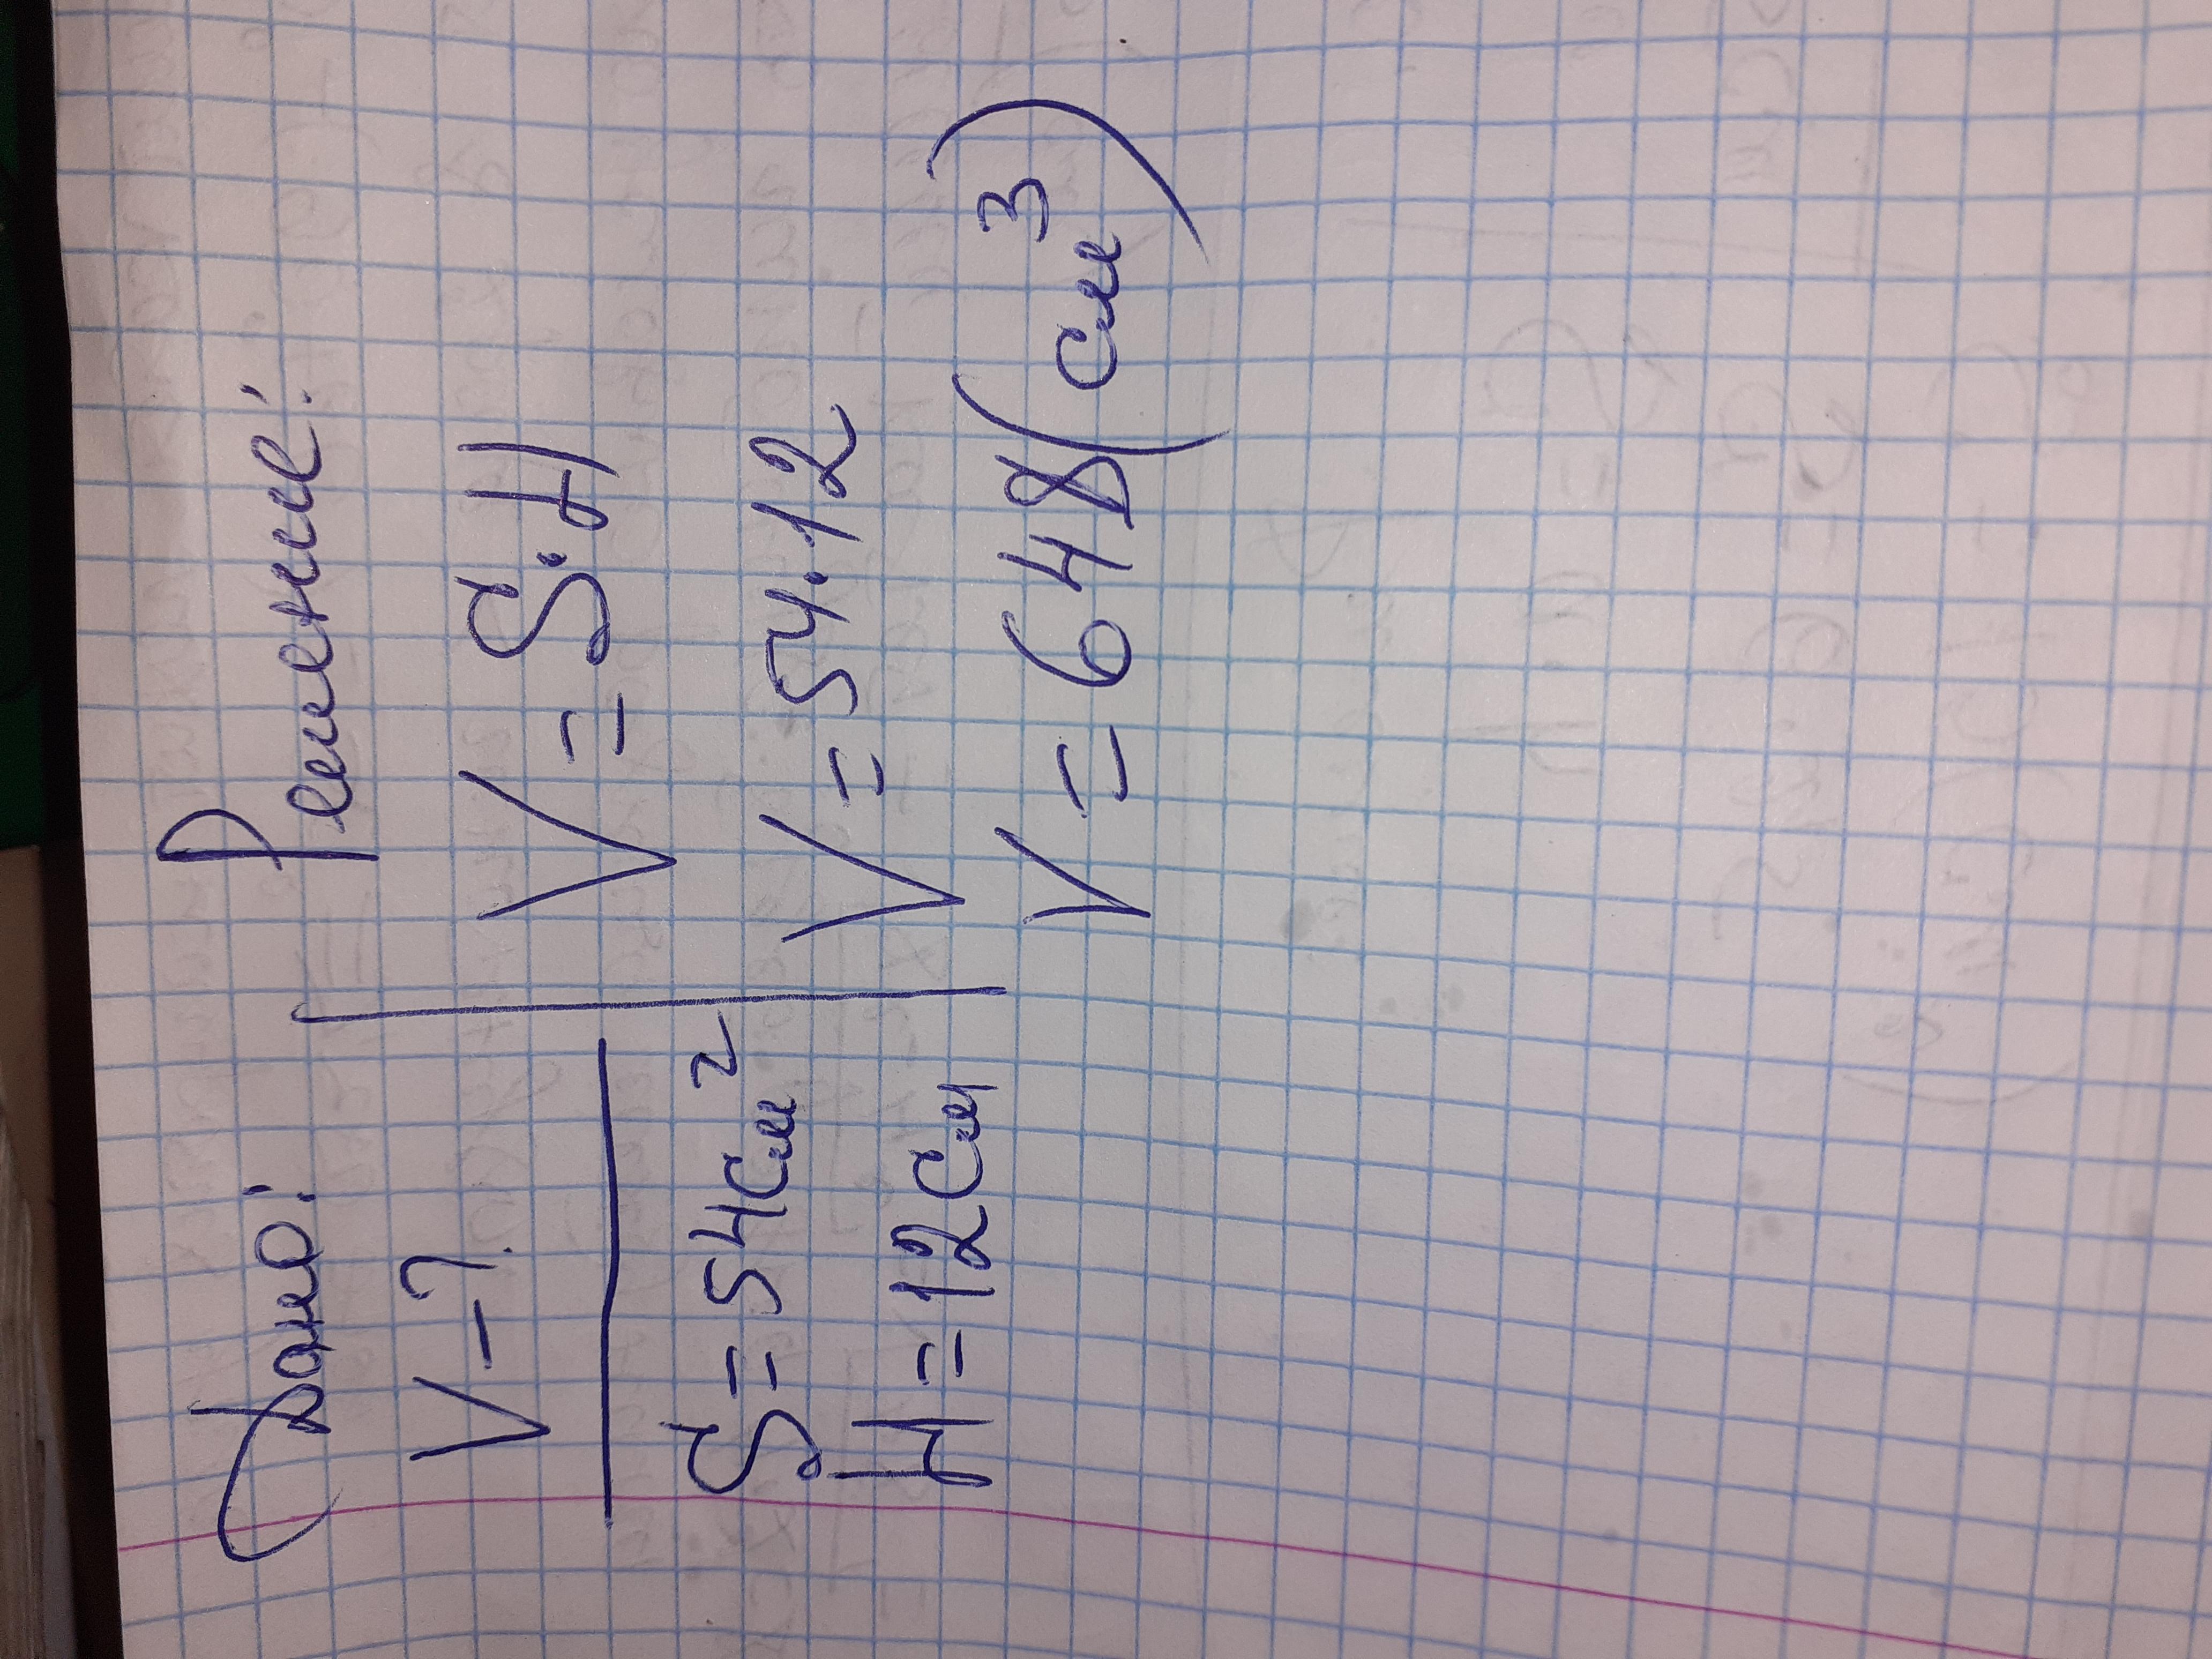 Дано:
V-?
S=54см²
H=12см
Решение:
V=S·H
V=54·12
V=648(см³)